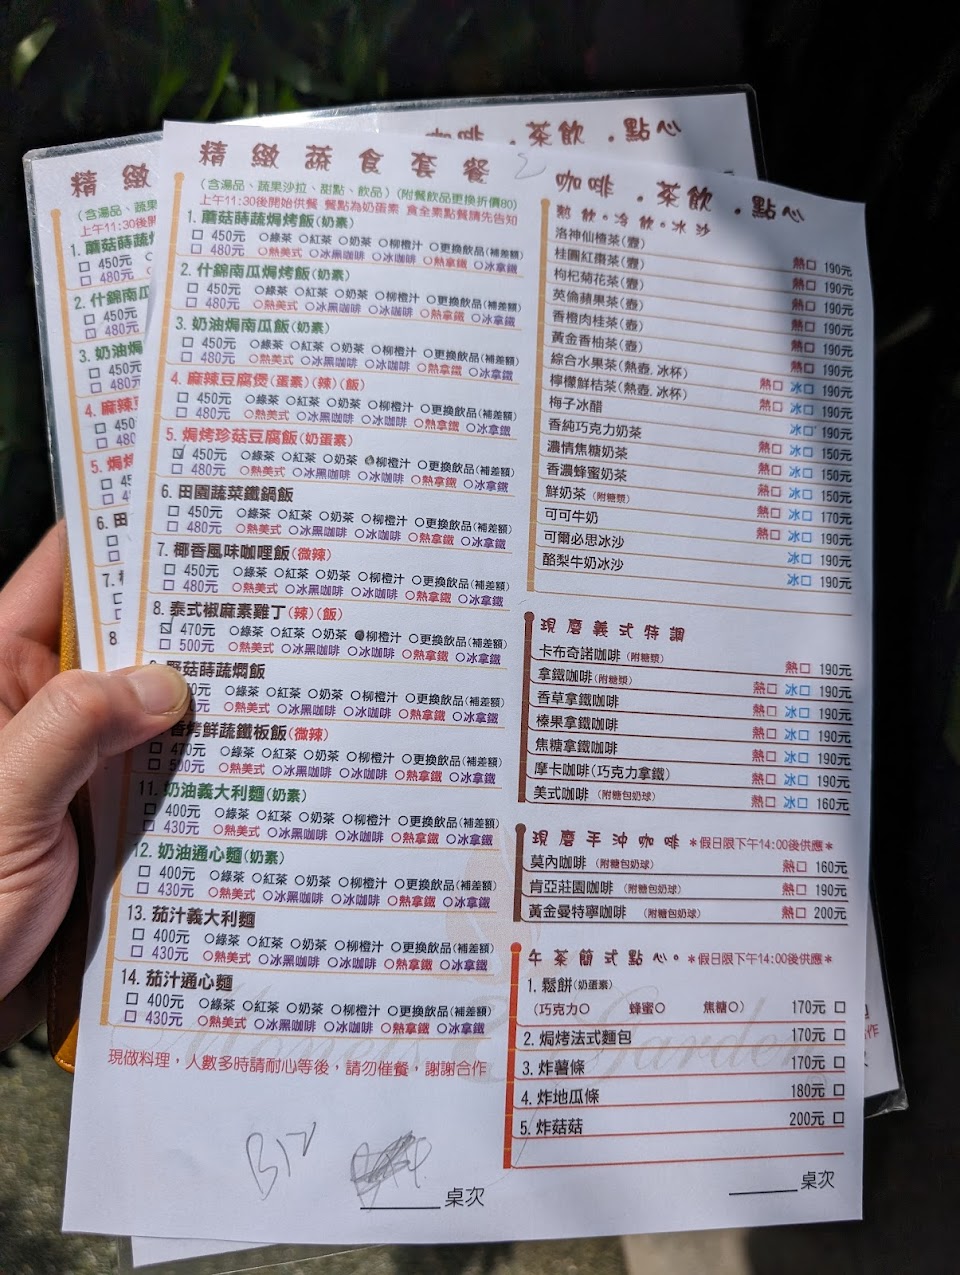 精緻蔬食套餐
(含湯品、蔬果沙拉、甜點、飲品)(附餐飲品更換折價80)
上午11:30後開始供餐 餐點為奶蛋素 食全素點餐請先告知
1. 蘑菇蒔蔬焗烤飯(奶素)
☐ 450元 ○綠茶 ○紅茶 ○奶茶 ○柳橙汁 ○更換飲品(補差額)
☐ 480元 ○熱美式 ○冰黑咖啡 ○冰咖啡 ○熱拿鐵 ○冰拿鐵
2. 什錦南瓜焗烤飯(奶素)
☐ 450元 ○綠茶 ○紅茶 ○奶茶 ○柳橙汁 ○更換飲品(補差額)
☐ 480元 ○熱美式 ○冰黑咖啡 ○冰咖啡 ○熱拿鐵 ○冰拿鐵
3. 奶油焗南瓜飯(奶素)
☐ 450元 ○綠茶 ○紅茶 ○奶茶 ○柳橙汁 ○更換飲品(補差額)
☐ 480元 ○熱美式 ○冰黑咖啡 ○冰咖啡 ○熱拿鐵 ○冰拿鐵
4. 麻辣豆腐煲(蛋素)(辣)(飯)
☐ 450元 ○綠茶 ○紅茶 ○奶茶 ○柳橙汁 ○更換飲品(補差額)
☐ 480元 ○熱美式 ○冰黑咖啡 ○冰咖啡 ○熱拿鐵 ○冰拿鐵
5. 焗烤珍菇豆腐飯(奶蛋素)
☑ 450元 ○綠茶 ○紅茶 ○奶茶 ●柳橙汁 ○更換飲品(補差額)
☐ 480元 ○熱美式 ○冰黑咖啡 ○冰咖啡 ○熱拿鐵 ○冰拿鐵
6. 田園蔬菜鐵鍋飯
☐ 450元 ○綠茶 ○紅茶 ○奶茶 ○柳橙汁 ○更換飲品(補差額)
☐ 480元 ○熱美式 ○冰黑咖啡 ○冰咖啡 ○熱拿鐵 ○冰拿鐵
7. 椰香風味咖哩飯(微辣)
☐ 450元 ○綠茶 ○紅茶 ○奶茶 ○柳橙汁 ○更換飲品(補差額)
☐ 480元 ○熱美式 ○冰黑咖啡 ○冰咖啡 ○熱拿鐵 ○冰拿鐵
8. 泰式椒麻素雞丁(辣)(飯)
☑ 470元 ○綠茶 ○紅茶 ○奶茶 ●柳橙汁 ○更換飲品(補差額)
☐ 500元 ○熱美式 ○冰黑咖啡 ○冰咖啡 ○熱拿鐵 ○冰拿鐵
野菇蒔蔬燜飯
70元 ○綠茶 ○紅茶 ○奶茶 ○柳橙汁 ○更換飲品(補差額)
元 ○熱美式 ○冰黑咖啡 ○冰咖啡 ○熱拿鐵 ○冰拿鐵
香烤鮮蔬鐵板飯(微辣)
☐ 470元 ○綠茶 ○紅茶 ○奶茶 ○柳橙汁 ○更換飲品(補差額)
☐ 500元 ○熱美式 ○冰黑咖啡 ○冰咖啡 ○熱拿鐵 ○冰拿鐵
11. 奶油義大利麵(奶素)
☐ 400元 ○綠茶 ○紅茶 ○奶茶 ○柳橙汁 ○更換飲品(補差額)
☐ 430元 ○熱美式 ○冰黑咖啡 ○冰咖啡 ○熱拿鐵 ○冰拿鐵
12. 奶油通心麵(奶素)
☐ 400元 ○綠茶 ○紅茶 ○奶茶 ○柳橙汁 ○更換飲品(補差額)
☐ 430元 ○熱美式 ○冰黑咖啡 ○冰咖啡 ○熱拿鐵 ○冰拿鐵
13. 茄汁義大利麵
☐ 400元 ○綠茶 ○紅茶 ○奶茶 ○柳橙汁 ○更換飲品(補差額)
☐ 430元 ○熱美式 ○冰黑咖啡 ○冰咖啡 ○熱拿鐵 ○冰拿鐵
14. 茄汁通心麵
☐ 400元 ○綠茶 ○紅茶 ○奶茶 ○柳橙汁 ○更換飲品(補差額)
☐ 430元 ○熱美式 ○冰黑咖啡 ○冰咖啡 ○熱拿鐵 ○冰拿鐵
現做料理，人數多時請耐心等後，請勿催餐，謝謝合作
桌次
咖啡.茶飲.點心
熱飲。冷飲。冰沙
洛神仙楂茶(壺) 熱☐ 190元
桂圓紅棗茶(壺) 熱☐ 190元
枸杞菊花茶(壺) 熱☐ 190元
英倫蘋果茶(壺) 熱☐ 190元
香橙肉桂茶(壺) 熱☐ 190元
黃金香柚茶(壺) 熱☐ 190元
綜合水果茶(熱壺.冰杯) 熱☐ 冰☐ 190元
檸檬鮮桔茶(熱壺.冰杯) 熱☐ 冰☐ 190元
梅子冰醋 冰☐ 190元
香純巧克力奶茶 熱☐ 冰☐ 150元
濃情焦糖奶茶 熱☐ 冰☐ 150元
香濃蜂蜜奶茶 熱☐ 冰☐ 150元
鮮奶茶 (附糖漿) 熱☐ 冰☐ 170元
可可牛奶 熱☐ 冰☐ 190元
可爾必思冰沙 冰☐ 190元
酪梨牛奶冰沙 冰☐ 190元
現磨義式特調
卡布奇諾咖啡(附糖漿) 熱☐ 190元
拿鐵咖啡(附糖漿) 熱☐ 冰☐ 190元
香草拿鐵咖啡 熱☐ 冰☐ 190元
榛果拿鐵咖啡 熱☐ 冰☐ 190元
焦糖拿鐵咖啡 熱☐ 冰☐ 190元
摩卡咖啡(巧克力拿鐵) 熱☐ 冰☐ 190元
美式咖啡 (附糖包奶球) 熱☐ 冰☐ 160元
現磨手沖咖啡 *假日限下午14:00後供應*
莫內咖啡 (附糖包奶球) 熱☐ 160元
肯亞莊園咖啡 (附糖包奶球) 熱☐ 190元
黃金曼特寧咖啡 (附糖包奶球) 熱☐ 200元
午茶簡式點心。*假日限下午14:00後供應*
1. 鬆餅(奶蛋素)
(巧克力○ 蜂蜜○ 焦糖○) 170元 ☐
2. 焗烤法式麵包 170元 ☐
3. 炸薯條 170元 ☐
4. 炸地瓜條 180元 ☐
5. 炸菇菇 200元 ☐
桌次